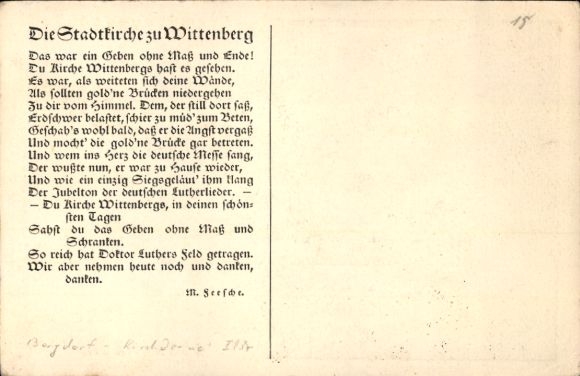 15
Die Stadtkirche zu Wittenberg
Das war ein Geben ohne Maß und Ende!
Du Kirche Wittenbergs hast es gesehen.
Es war, als weiteten sich deine Wände,
Als sollten gold'ne Brücken niedergehen
Zu dir vom Himmel. Dem, der still dort saß,
Erdschwer belastet, schier zu müd' zum Beten,
Geschah's wohl bald, daß er die Angst vergaß
Und mocht' die gold'ne Brücke gar betreten.
Und wem ins Herz die deutsche Messe sang,
Der wußte nun, er war zu Hause wieder,
Und wie ein einzig Siegsgeläut' ihm klang
Der Jubelton der deutschen Lutherlieder. —
— Du Kirche Wittenbergs, in deinen schön-
sten Tagen
Sahst du das Geben ohne Maß und
Schranken.
So reich hat Doktor Luthers Feld getragen.
Wir aber nehmen heute noch und danken,
danken.
M. Feesche.